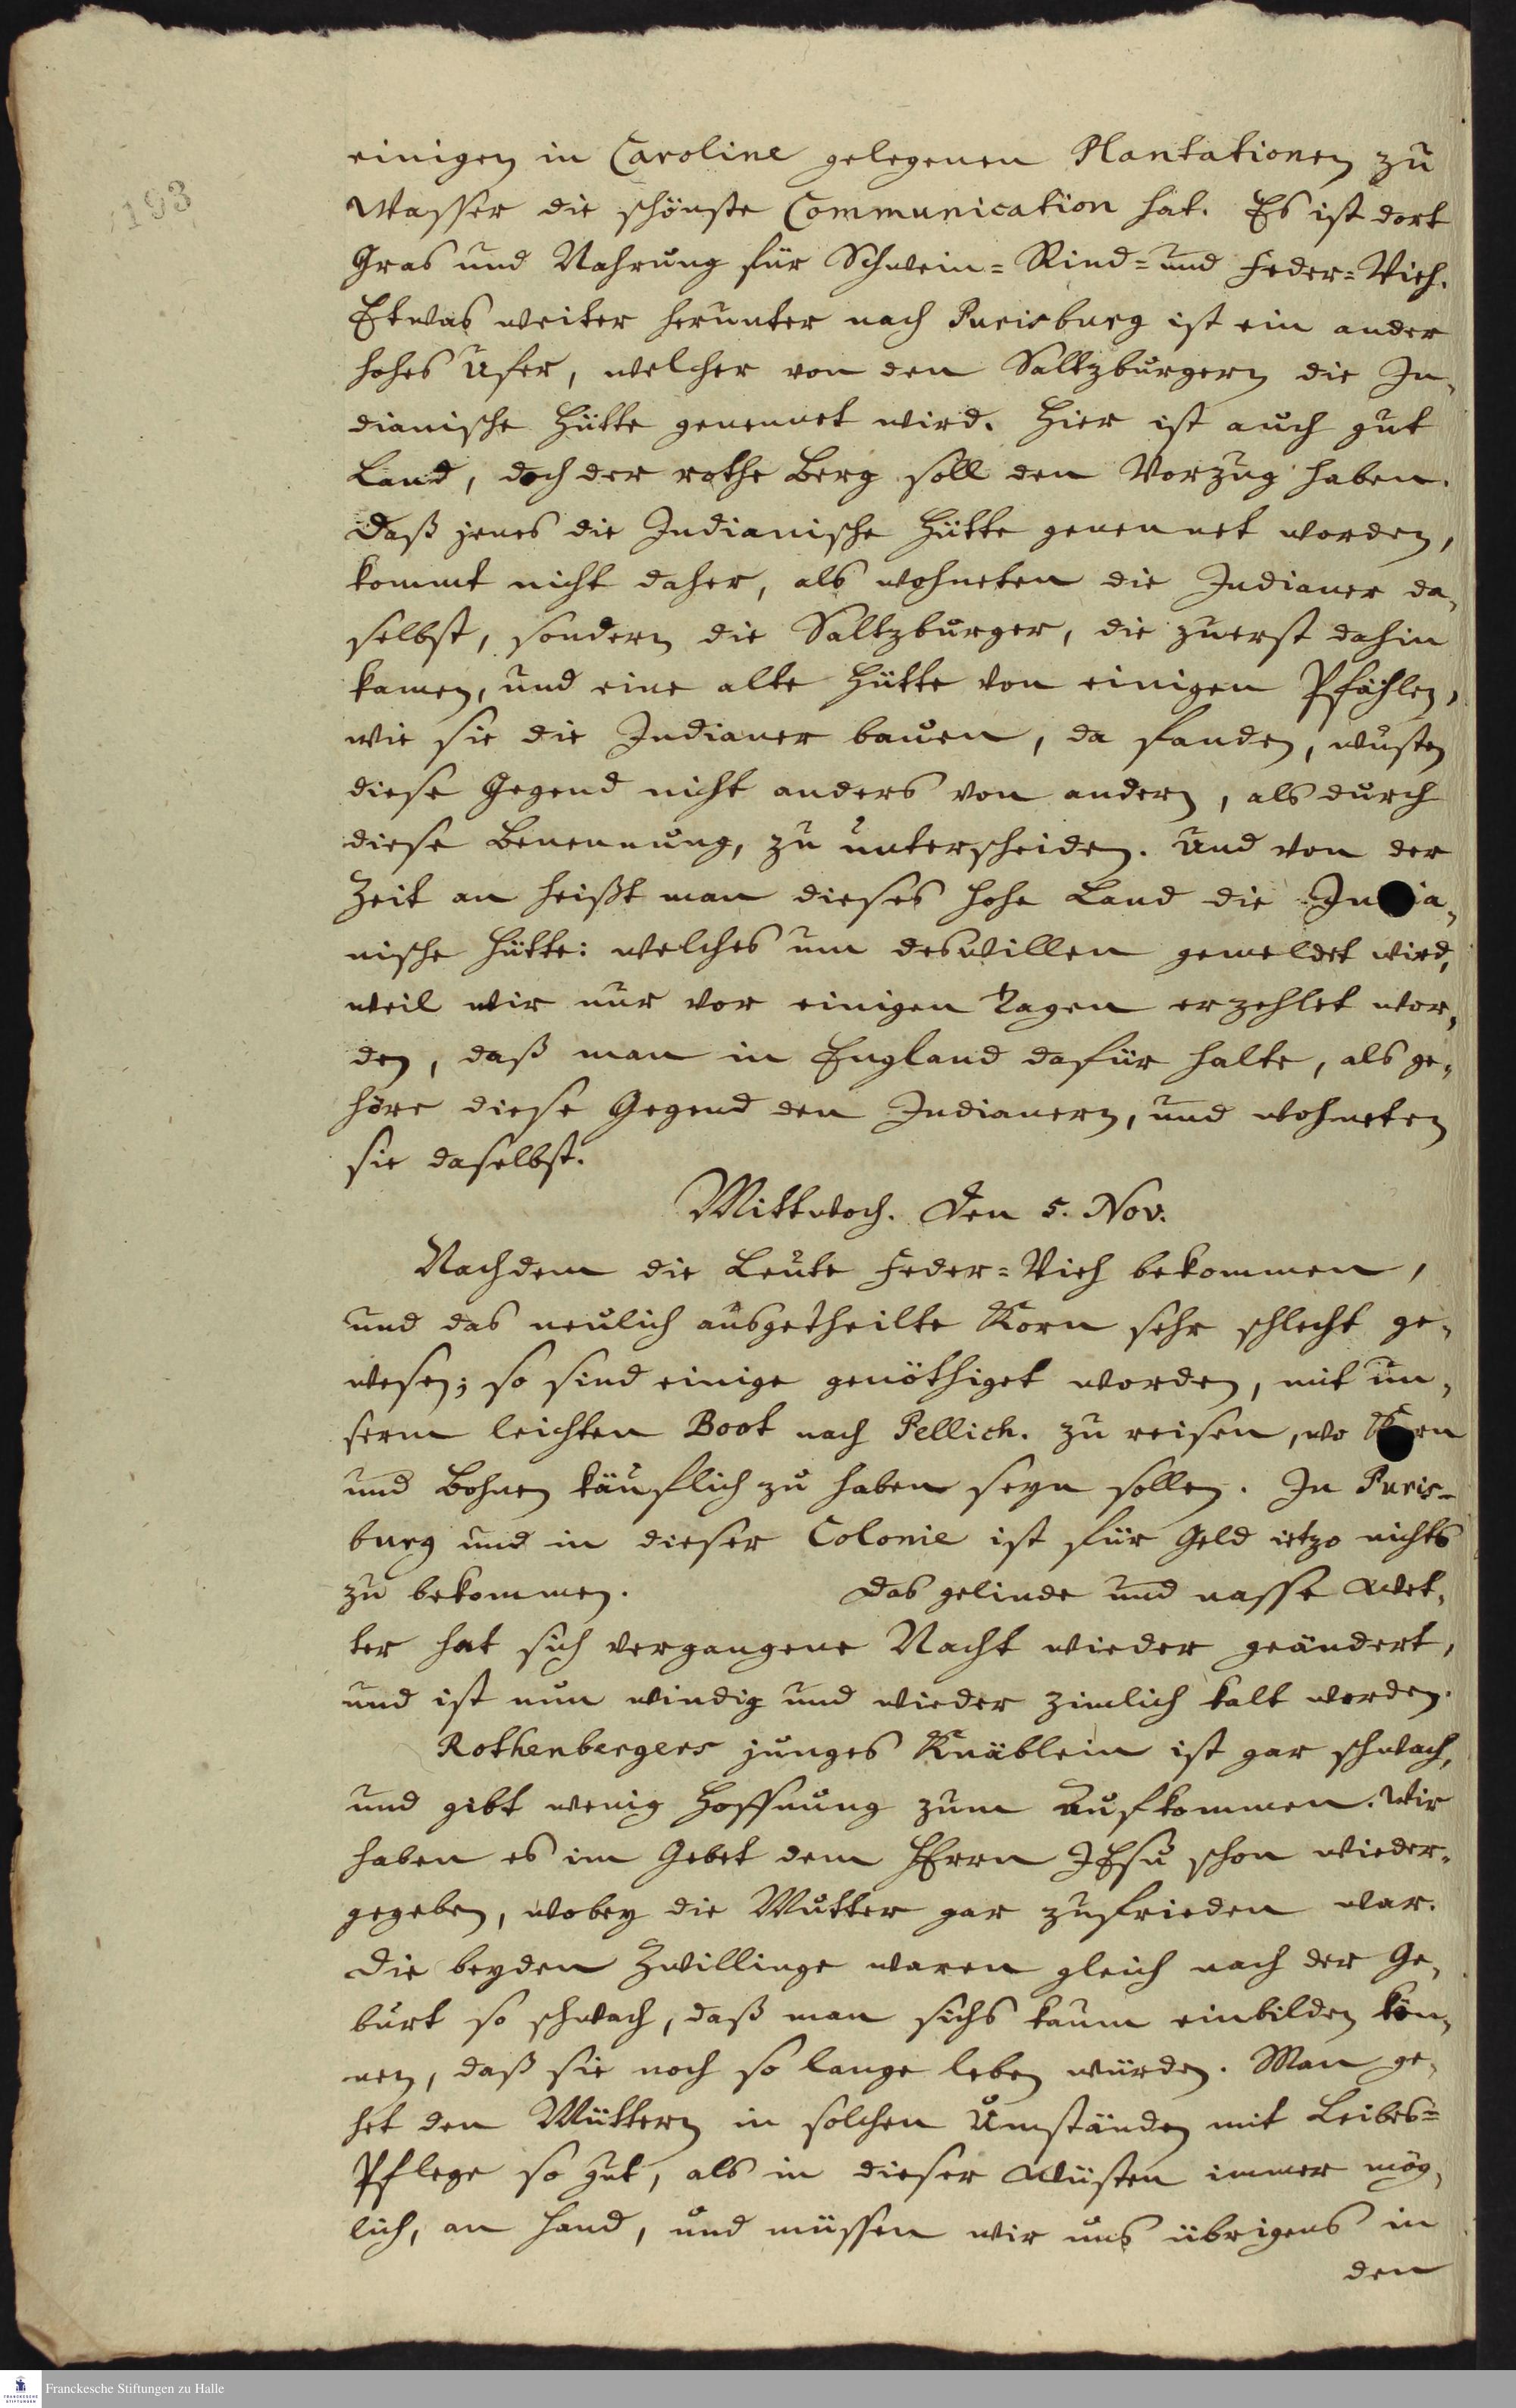 1193
einigen in Caroline gelegenen Plantationen zu
Wasser die schönste Communication hat. Es ist dort
Gras und Nahrung für Schwein= Rind= und Feder=Vieh.
Etwas weiter herunter nach Purisburg ist ein ander
hohes Ufer, welcher von den Saltzburgern die In,
dianische Hütte genennet wird. Hier ist auch gut
Land, doch der rothe Berg soll den Vorzug haben.
Daß jenes die Indianische Hütte genennet worden,
kommt nicht daher, als wohneten die Indianer da,
selbst, sondern die Saltzburger, die zuerst dahin
kamen, und eine alte Hütte von einigen Pfählen,
wie sie die Indianer bauen, da fanden, wusten
diese Gegend nicht anders von andern, als durch
diese Benennung, zu unterscheiden. Und von der
Zeit an heißt man dieses hohe Land die In ia,
nische Hütte: welches um deswillen gemeldet wird,
weil wir nur vor einigen Tagen erzehlet wor,
den, daß man in England dafür halte, als ge,
höre diese Gegend den Indianern, und wohneten
sie daselbst.
Mittwoch. Den 5. Nov.
Nachdem die Leute Feder=Vieh bekommen,
und das neulich ausgetheilte Korn sehr schlecht ge,
wesen; so sind einige genöthiget worden, mit un,
serm leichten Boot nach Pellich. zu reisen, wo K rn
und Bohnen käuflich zu haben seyn sollen. In Puris-
burg und in dieser Colonie ist für Geld ietzo nichts
zu bekommen. Das gelinde und nasse Wet,
ter hat sich vergangene Nacht wieder geändert,
und ist nun windig und wieder zimlich kalt worden.
Rothenbergers junges Knäblein ist gar schwach,
und gibt wenig Hoffnung zum Aufkommen. Wir
haben es im Gebet dem HErrn JEsu schon wieder,
gegeben, wobey die Mutter gar zufrieden war.
Die beyden Zwillinge waren gleich nach der Ge,
burt so schwach, daß man sichs kaum einbilden kön,
nen, daß sie noch so lange leben würden. Man ge,
het den Müttern in solchen Umständen mit Leibes=
Pflege so gut, als in dieser Wüsten immer mög,
lich, an Hand, und müssen wir uns übrigens in
den
Franckesche Stiftungen zu Halle